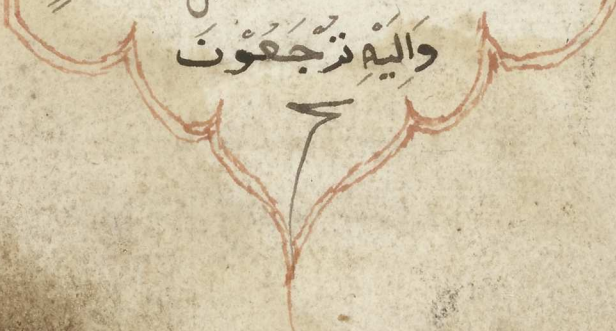 وَاِلَيْهِ تُرْجَعُوْنَ